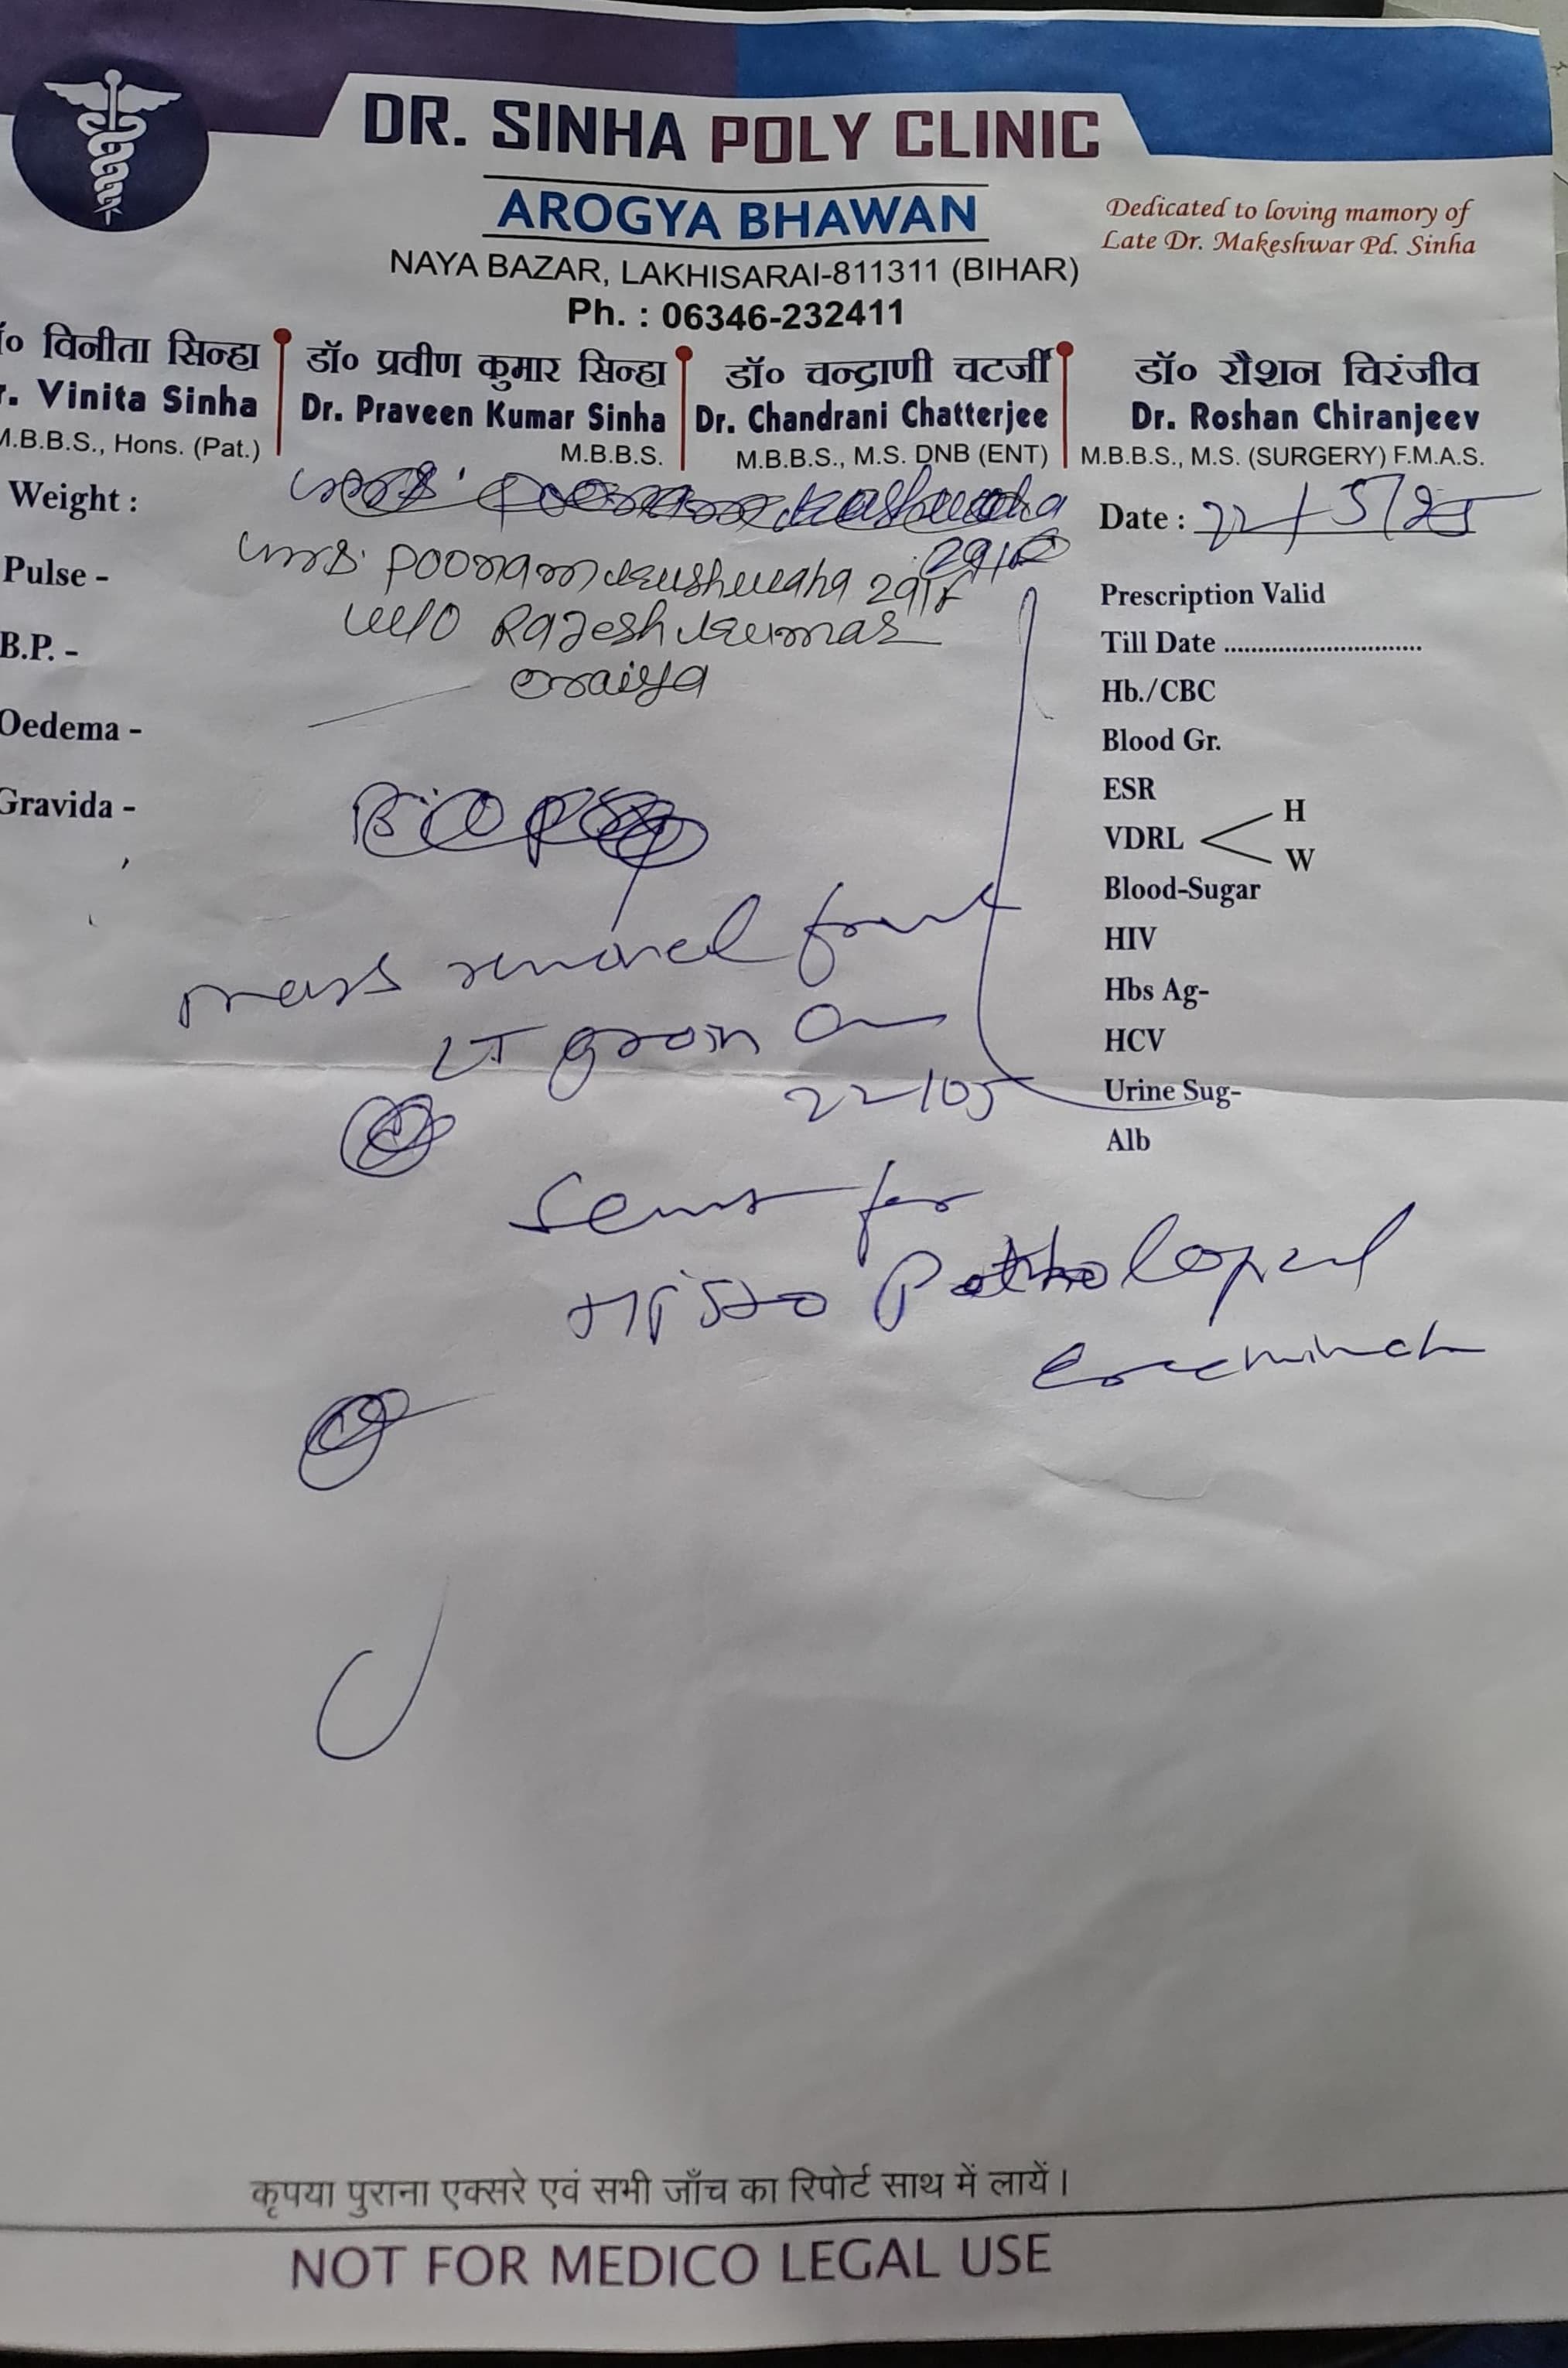 DR. SINHA POLY CLINIC
AROGYA BHAWAN
Dedicated to loving mamory of
Late Dr. Makeshwar Pd. Sinha
NAYA BAZAR, LAKHISARAI-811311 (BIHAR)
Ph. : 06346-232411
विनीता सिन्हा
Vinita Sinha
M.B.B.S., Hons. (Pat.)
डॉ० प्रवीण कुमार सिन्हा
Dr. Praveen Kumar Sinha
M.B.B.S.
डॉ० चन्द्राणी चटर्जी
Dr. Chandrani Chatterjee
M.B.B.S., M.S. DNB (ENT)
डॉ० रौशन चिरंजीव
Dr. Roshan Chiranjeev
M.B.B.S., M.S. (SURGERY) F.M.A.S.
Date : 22/5/25
Weight :
Pulse -
B.P. -
Oedema -
Gravida -
Mrs. Poonam Kushwaha 29/F
W/O Rajesh Kumar
Oraiya
mass removed from
LT groin on
22/05
Sent for
Histo Pathological
Prescription Valid
Till Date ..............................
Hb./CBC
Blood Gr.
ESR
VDRL H
W
Blood-Sugar
HIV
Hbs Ag-
HCV
Urine Sug-
Alb
कृपया पुराना एक्सरे एवं सभी जाँच का रिपोर्ट साथ में लायें।
NOT FOR MEDICO LEGAL USE